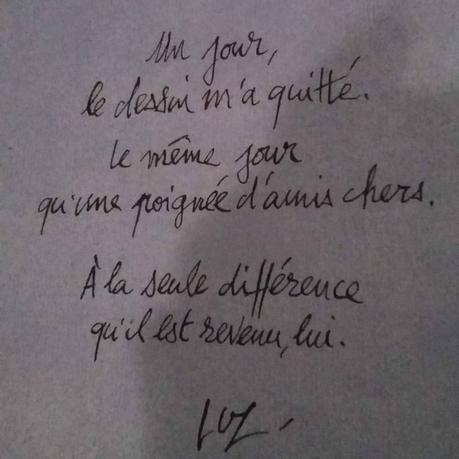 Un jour,
le dessin m'a quitté.
Le même jour
qu'une poignée d'amis chers.
À la seule différence
qu'il est revenu, lui.
LUZ